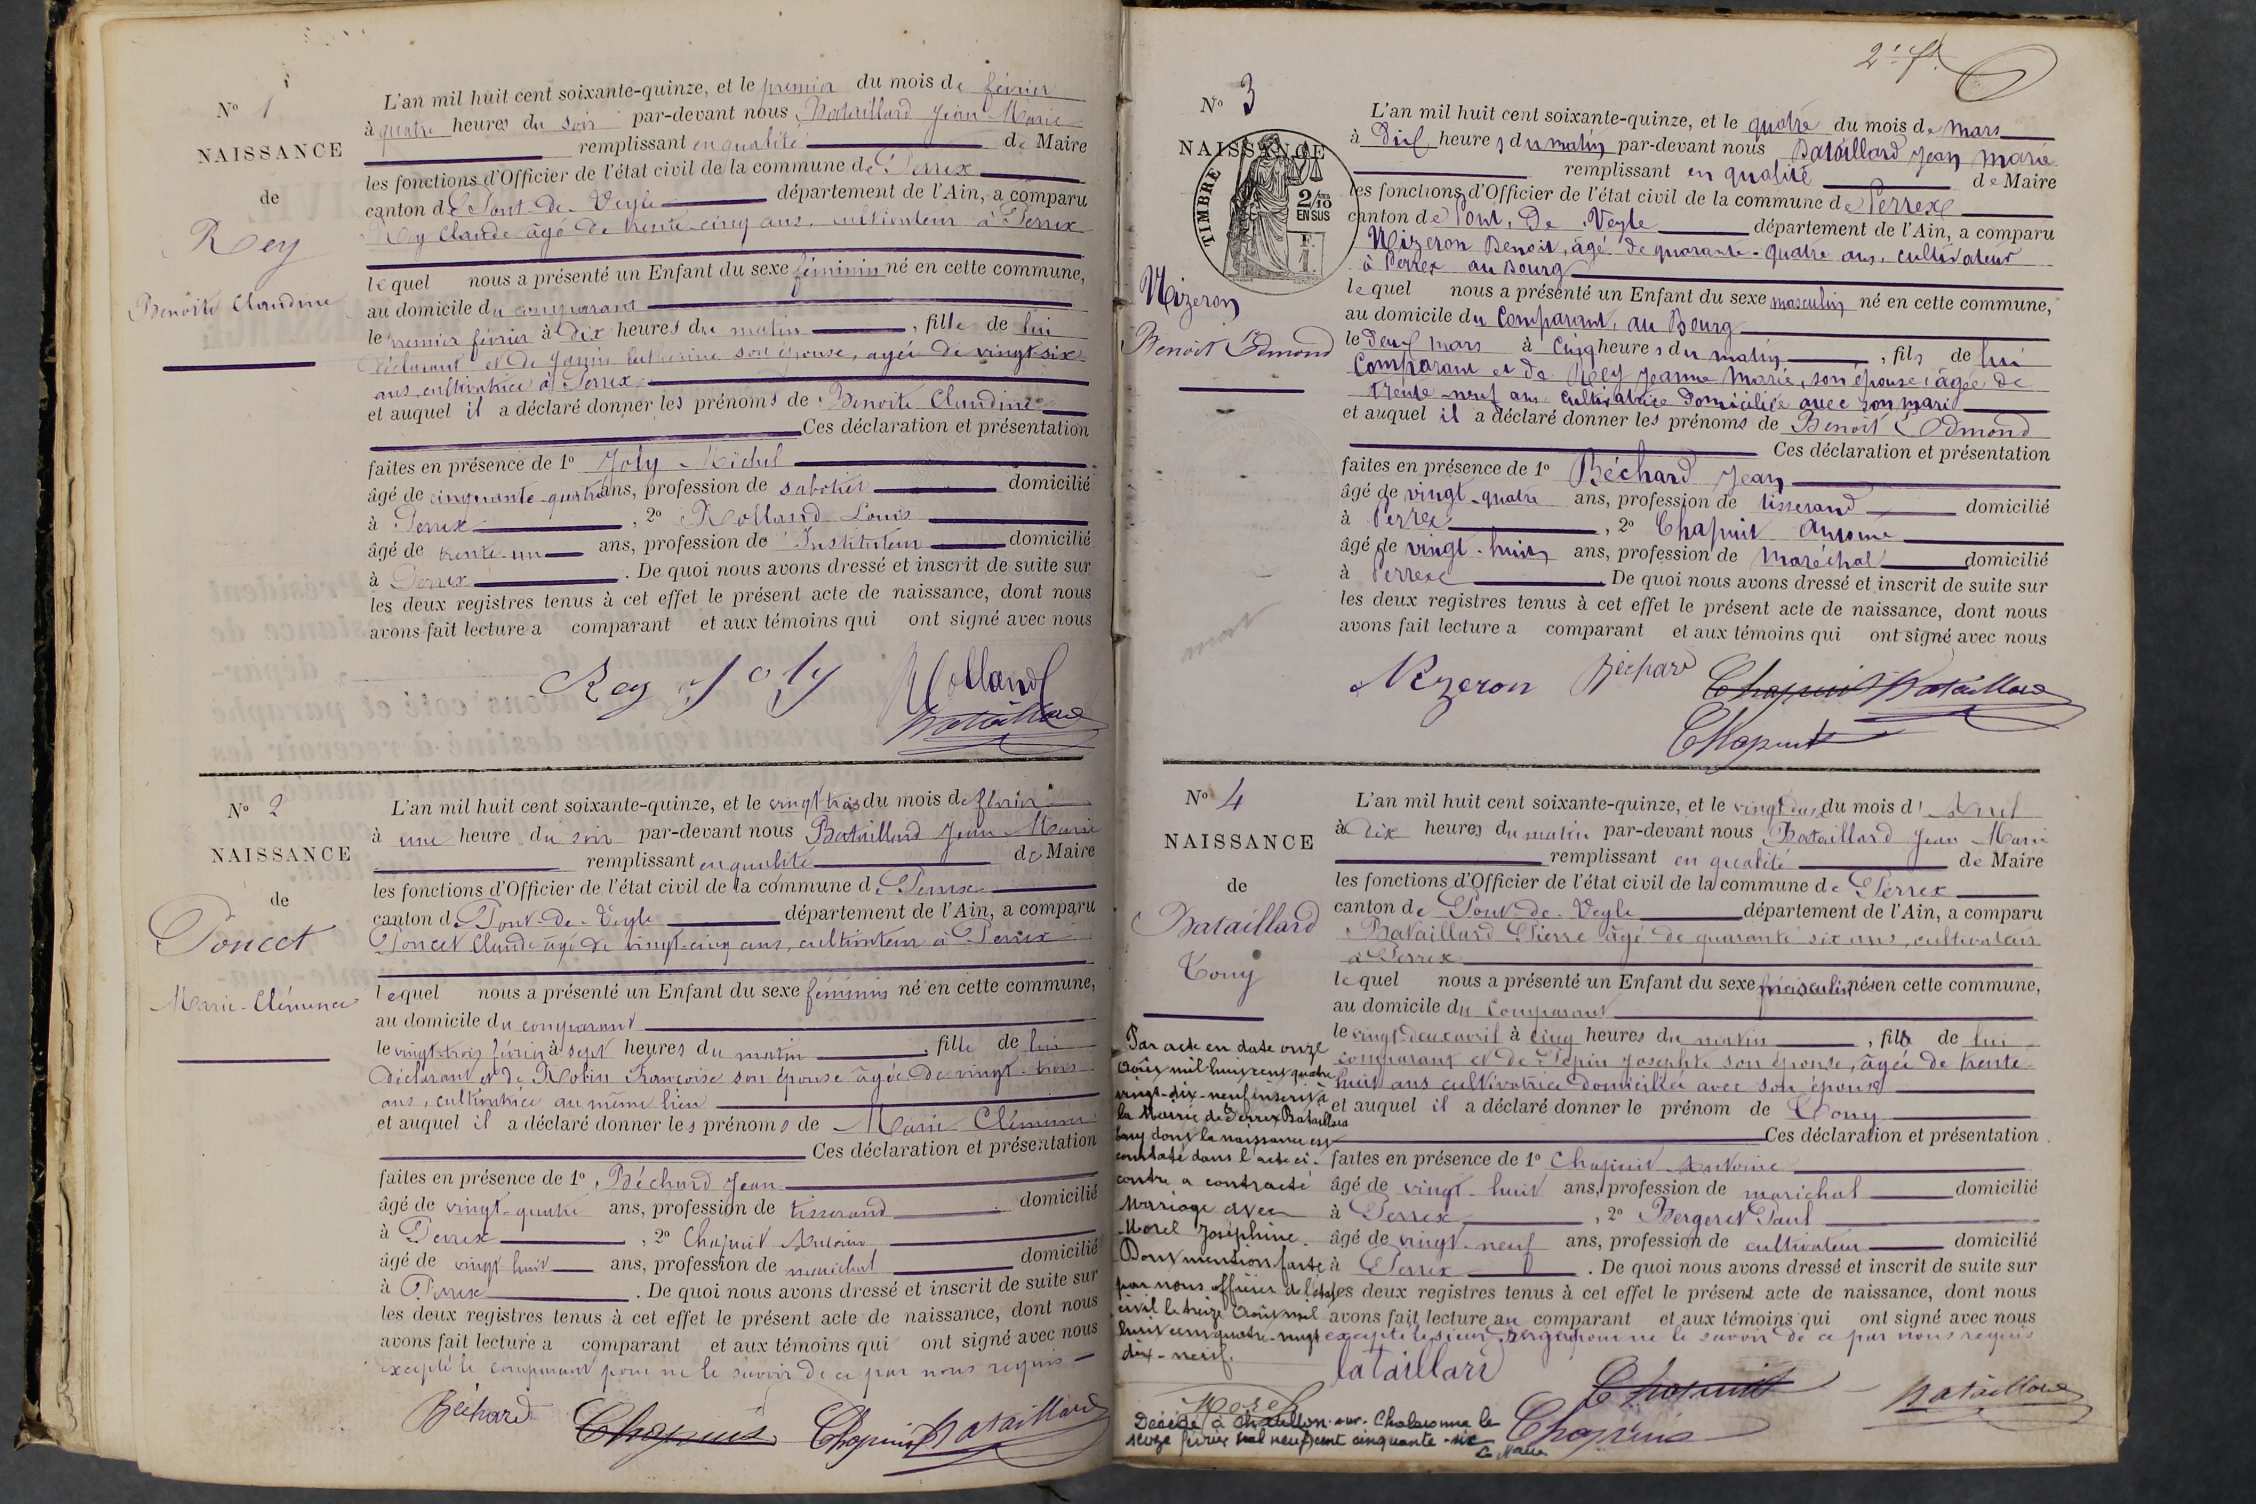 N° 1
NAISSANCE
de
Rey
Benoîte Claudine
L'an mil huit cent soixante-quinze, et le premier du mois de février
à quatre heures du soir par-devant nous Bataillard Jean Marie
remplissant en qualité de Maire
les fonctions d'Officier de l'état civil de la commune de Perrex
canton de Pont-de-Veyle département de l'Ain, a comparu
Rey Claude âgé de trente-cinq ans, cultivateur à Perrex
lequel nous a présenté un Enfant du sexe féminin né en cette commune,
au domicile du comparant
le premier février à dix heures du matin, fille de lui
déclarant et de Catherine son épouse, agée de vingt-six
ans, cultivatrice à Perrex
et auquel il a déclaré donner les prénoms de Benoîte Claudine
Ces déclaration et présentation
faites en présence de 1° Joly Michel
âgé de cinquante-quatre ans, profession de sabotier domicilié
à Perrex, 2° Rolland Louis
âgé de trente-un ans, profession de Instituteur domicilié
à Perrex. De quoi nous avons dressé et inscrit de suite sur
les deux registres tenus à cet effet le présent acte de naissance, dont nous
avons fait lecture a comparant et aux témoins qui ont signé avec nous
Rey Joly Rolland
Bataillard
N° 2
NAISSANCE
de
Poncet
Marie-Clémence
L'an mil huit cent soixante-quinze, et le vingt trois du mois de février
à une heure du soir par-devant nous Bataillard Jean Marie
remplissant en qualité de Maire
les fonctions d'Officier de l'état civil de la commune de Perrex
canton de Pont-de-Veyle département de l'Ain, a comparu
Poncet Claude âgé de vingt-cinq ans, cultivateur à Perrex
lequel nous a présenté un Enfant du sexe féminin né en cette commune,
au domicile du comparant
le vingt-trois février à sept heures du matin, fille de lui
déclarant et de Robin Françoise son épouse âgée de vingt-trois
ans, cultivatrice au même lieu
et auquel il a déclaré donner les prénoms de Marie Clémence
Ces déclaration et présentation
faites en présence de 1° Béchard Jean
âgé de vingt-quatre ans, profession de tisserand domicilié
à Perrex, 2° Chapuit Antoine
âgé de vingt huit ans, profession de maréchal domicilié
à Perrex. De quoi nous avons dressé et inscrit de suite sur
les deux registres tenus à cet effet le présent acte de naissance, dont nous
avons fait lecture a comparant et aux témoins qui ont signé avec nous
excepté le comparant pour ne le savoir de ce par nous requis
Béchard Chapuis Chapuis Bataillard
2e f.
N° 3
NAISSANCE
TIMBRE
2/10
EN SUS
Nizeron
Benoît Edmond
L'an mil huit cent soixante-quinze, et le quatre du mois de mars
à dix heures du matin par-devant nous Bataillard Jean Marie
remplissant en qualité de Maire
les fonctions d'Officier de l'état civil de la commune de Perrex
canton de Pont, De Veyle département de l'Ain, a comparu
Nizeron Benoit, âgé de quarante-quatre ans, cultivateur
à Perrex au Bourg
lequel nous a présenté un Enfant du sexe masculin né en cette commune,
au domicile du comparant, au Bourg
le Deux mars à cinq heures du matin, fils de lui
comparant et de Rey Jeanne Marie, son épouse, âgée de
trente-neuf ans cultivatrice domiciliée avec son mari
et auquel il a déclaré donner les prénoms de Benoît Edmond
Ces déclaration et présentation
faites en présence de 1° Béchard Jean
âgé de vingt-quatre ans, profession de tisserand domicilié
à Perrex, 2° Chapuit Antoine
âgé de vingt-huit ans, profession de maréchal domicilié
à Perrex. De quoi nous avons dressé et inscrit de suite sur
les deux registres tenus à cet effet le présent acte de naissance, dont nous
avons fait lecture a comparant et aux témoins qui ont signé avec nous
mort
Nizeron Béchard Chapuis Bataillard
Chapuit
N° 4
NAISSANCE
de
Bataillard
Tony
L'an mil huit cent soixante-quinze, et le vingt deux du mois d'Avril
à dix heures du matin par-devant nous Bataillard Jean Marie
remplissant en qualité de Maire
les fonctions d'Officier de l'état civil de la commune de Perrex
canton de Pont-de-Veyle département de l'Ain, a comparu
Bataillard Pierre âgé de quarante six ans, cultivateur
à Perrex
lequel nous a présenté un Enfant du sexe masculin né en cette commune,
au domicile du comparant
le vingt-deux avril à cinq heures du matin, fils de lui
comparant et de Pépin Josephte son épouse, âgée de trente
huit ans cultivatrice domiciliée avec son époux
et auquel il a déclaré donner le prénom de Tony
Ces déclaration et présentation
faites en présence de 1° Chapuit Antoine
âgé de vingt-huit ans, profession de maréchal domicilié
à Perrex, 2° Bergeret Paul
âgé de vingt-neuf ans, profession de cultivateur domicilié
à Perrex. De quoi nous avons dressé et inscrit de suite sur
les deux registres tenus à cet effet le présent acte de naissance, dont nous
avons fait lecture au comparant et aux témoins qui ont signé avec nous
excepté le sieur Bergeret pour ne le savoir de ce par nous requis
Bataillard Chapuit Bataillard
Chapuis
Par acte en date onze
Août mil huit cent quatre
vingt-dix-neuf inscrit à
la Mairie de Perrex Bataillard
Tony dont la naissance est
constatée dans l'acte ci-
contre a contracté
Mariage avec
Morel Joséphine.
Dont mention faite
par nous officier de l'état
civil le treize Août mil
huit cent quatre-vingt
dix-neuf.
Morel
Décédé à Chatillon-sur-Chalaronne le
seize février mil neuf cent cinquante-six
Le Maire